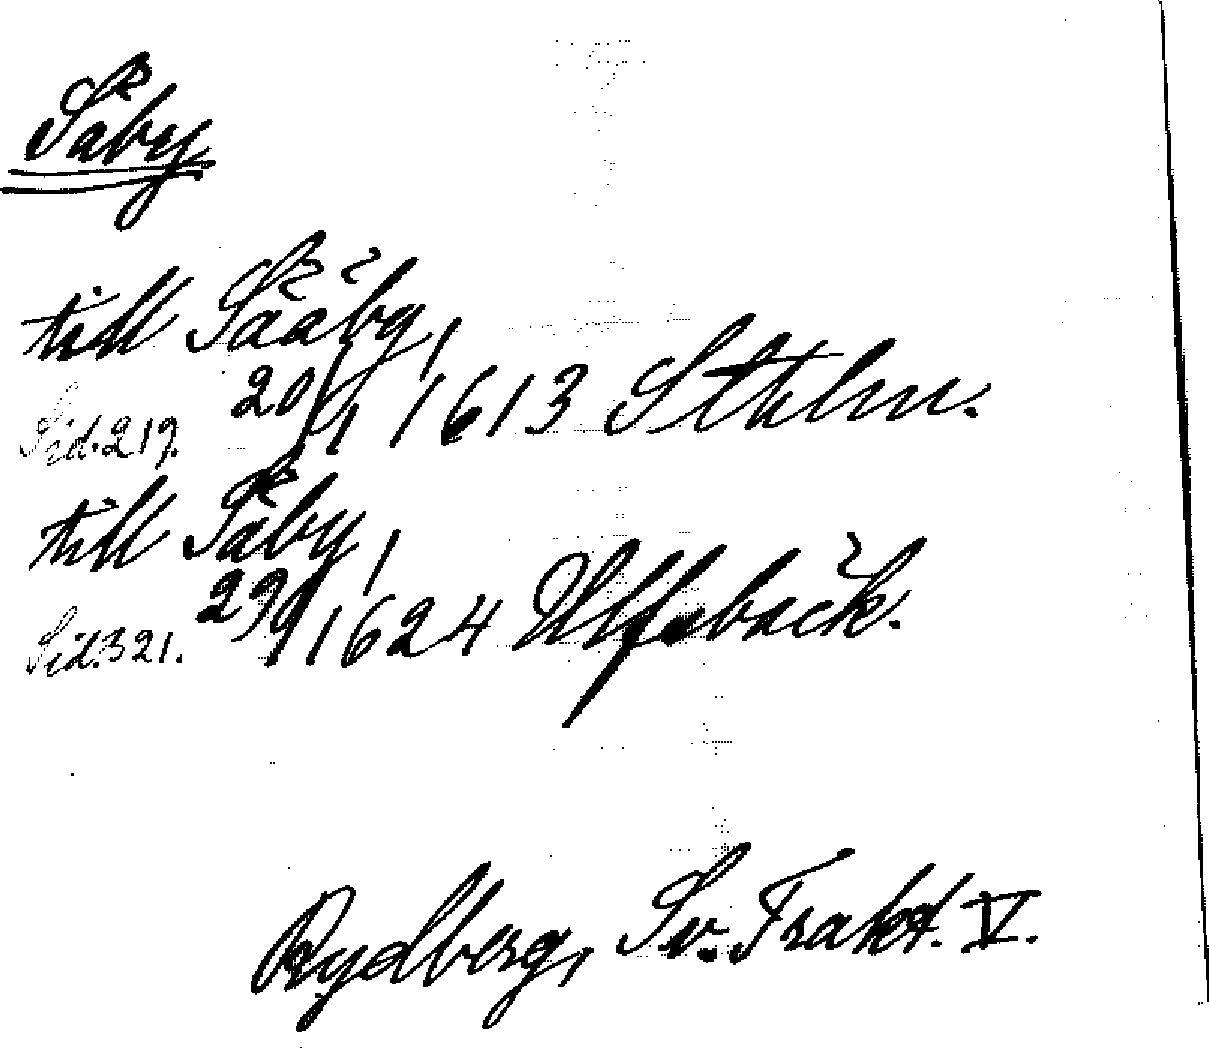 Säby
till Sääby,
Sid. 219. 20/1 1613 Sthlm.
till Säby,
Sid. 321. 29/1 1624 Ulfsbäck.
Rydberg, Sv. Trakt. V.